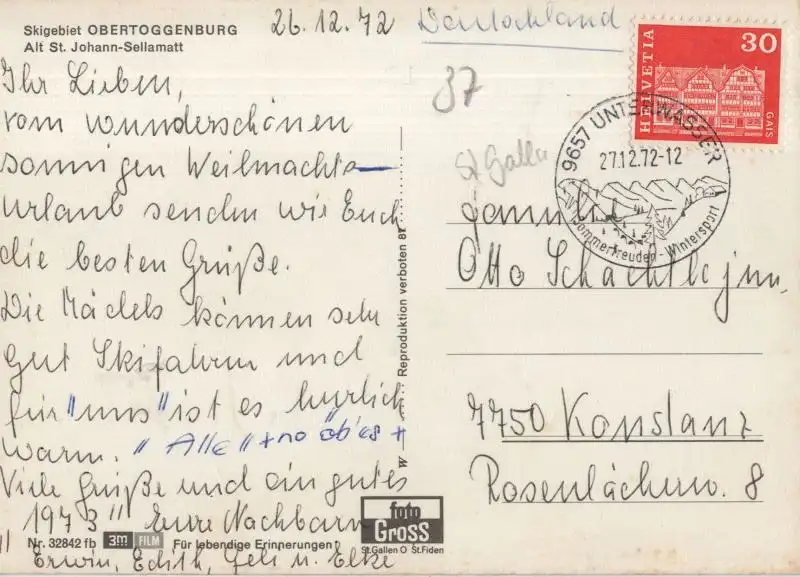 Skigebiet OBERTOGGENBURG
Alt St. Johann-Sellamatt
26.12.72
Deutschland
Ihr Lieben,
vom wunderschönen
sonnigen Weihnachts-
urlaub senden wir Euch
die besten Grüße.
Die Mädels können sehr
gut Skifahren und
für "uns" ist es herrlich
warm. "Alle"
Viele Grüße und ein gutes
1973" Eure Nachbarn
Erwin, Edith, Geli u. Elke
Nr. 32842 fb 3M FILM Für lebendige Erinnerungen
Reproduktion verboten
foto
GROSS
St.Gallen O St.Fiden
37
St Gallen
HELVETIA
30
GAIS
9657 UNTERWASSER
27.12.72-12
Sommerfreuden - Wintersport
Otto Schächtle jun.
7750 Konstanz
Rosenlächerw. 8